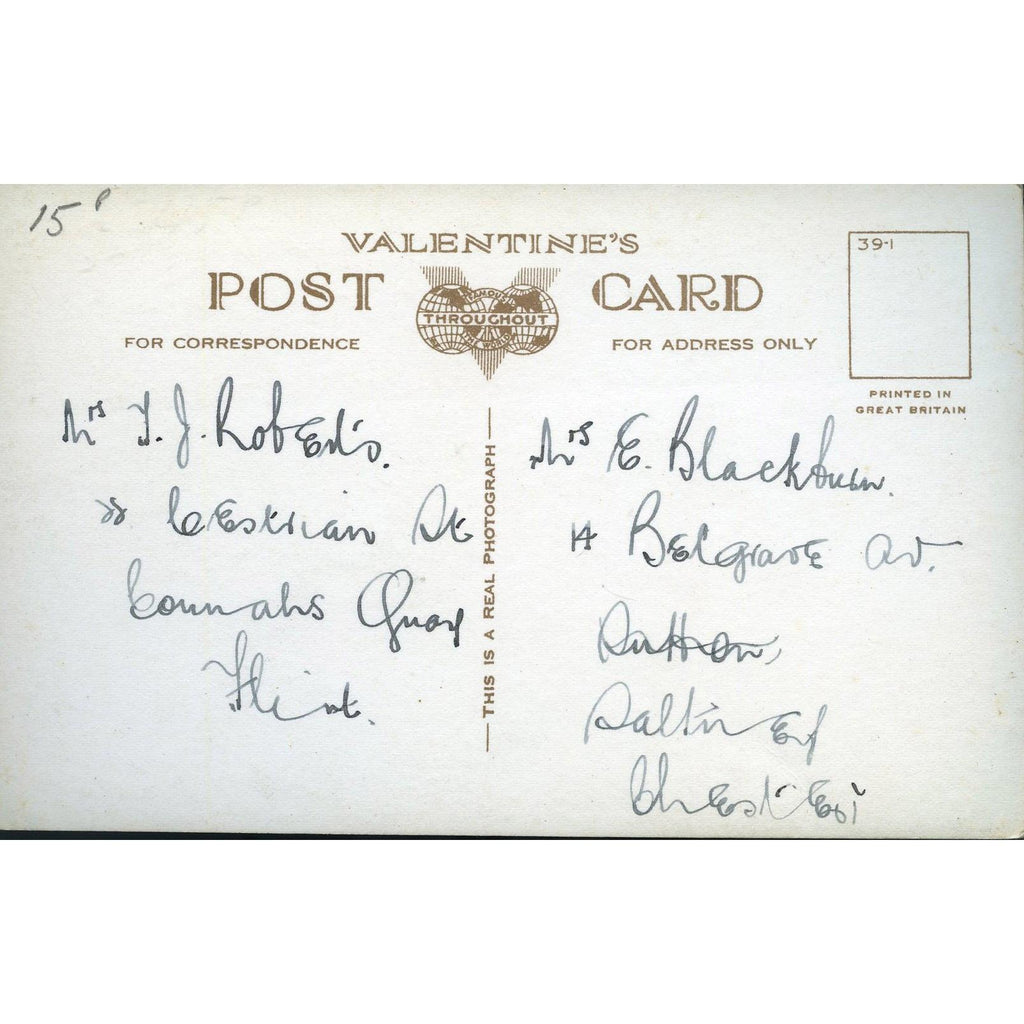 15 P
VALENTINE'S
POST CARD
FAMOUS
THROUGHOUT
THE WORLD
FOR CORRESPONDENCE
FOR ADDRESS ONLY
39-1
PRINTED IN
GREAT BRITAIN
THIS IS A REAL PHOTOGRAPH
Mrs T. J. Roberts.
Cestrian St
Connahs Quay
Flint.
Mrs E. Blackburn.
14 Belgrave Av.
Sutton,
Saltney
Chester